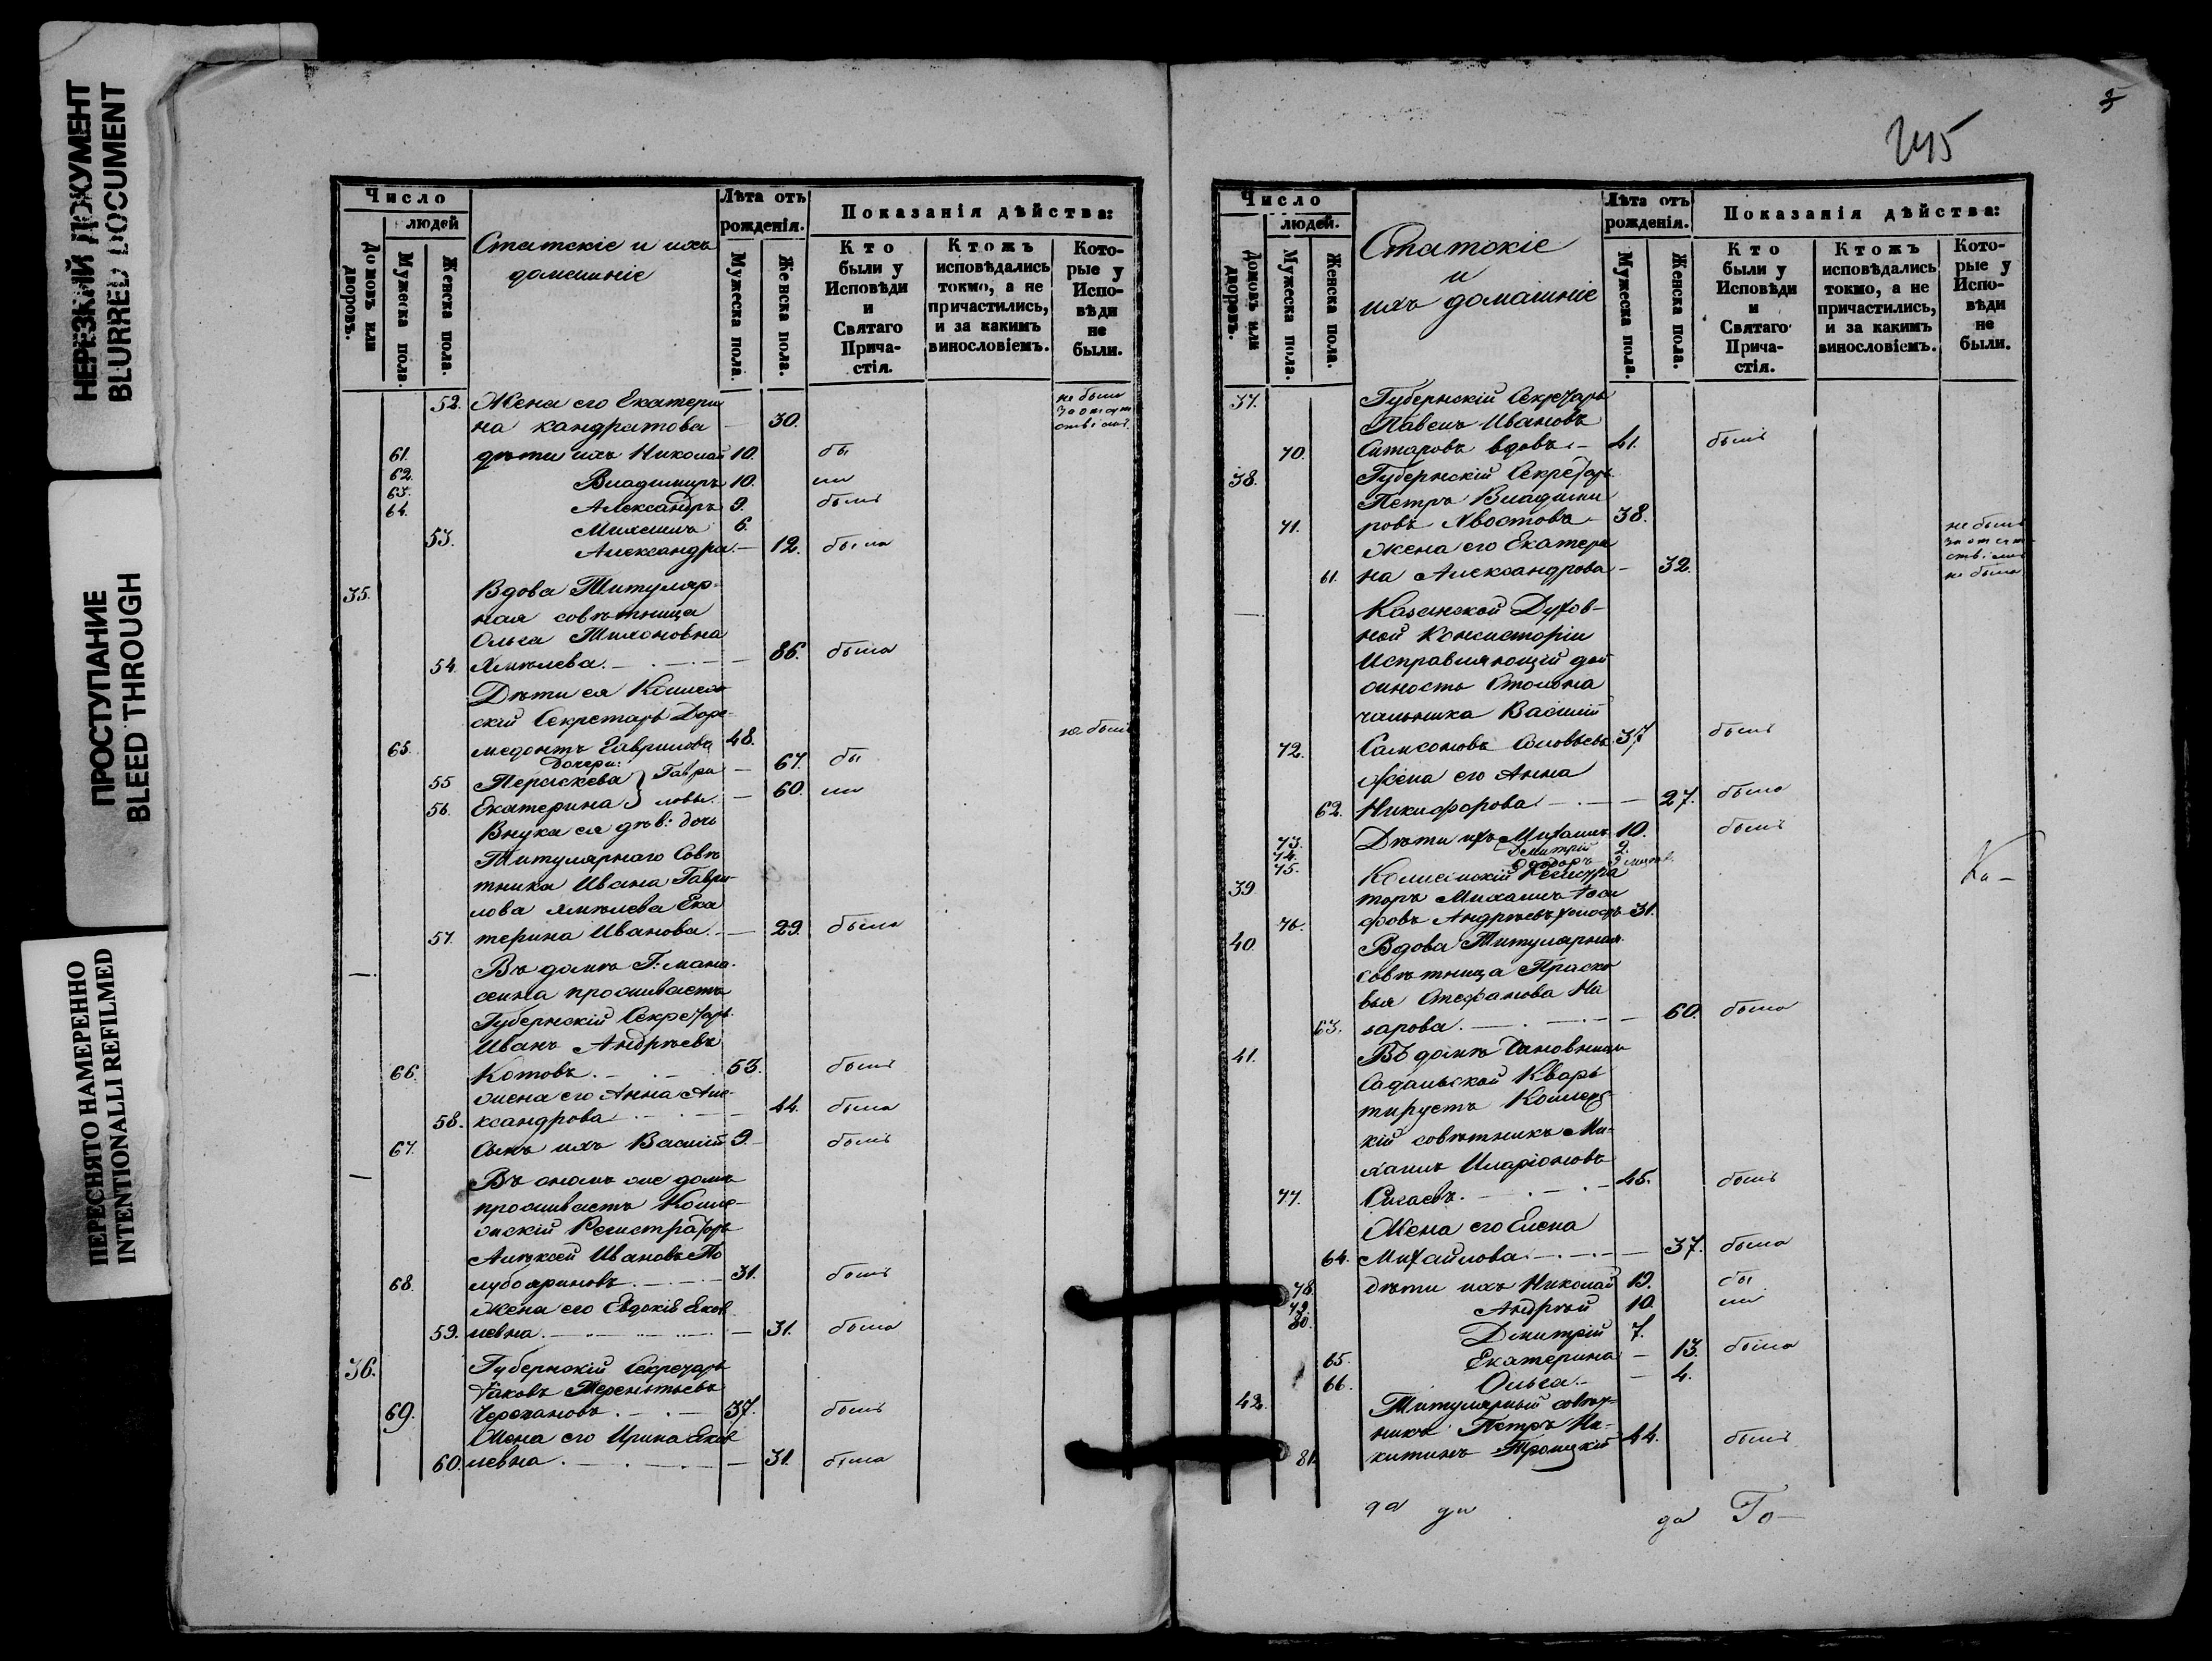 НЕРЕЗКИЙ ДОКУМЕНТ
BLURRED DOCUMENT
ПРОСТУПАНИЕ
BLEED THROUGH
ПЕРЕСНЯТО НАМЕРЕННО
INTENTIONALLI REFILMED
Число
людей
Домовъ или дворовъ.
Мужеска пола.
Женска пола.
Статскіе и ихъ
домашніе
Лѣта отъ
рожденія.
Мужеска пола.
Женска пола.
Показанія дѣйства:
Кто
были у
Исповѣди
и
Святаго
Прича-
стія.
Ктожъ
исповѣдались
токмо, а не
причастились,
и за какимъ
винословіемъ.
Кото-
рые у
Испо-
вѣди
не
были.
52. Жена его Екатери
на Кандратова - 30. не были за отсут ствіемъ
61. дѣти ихъ Николай 10. бы
62. Владимиръ 10. ли
63. Александръ 9. былъ
64. Михаилъ 6.
53. Александра - 12. была
35. Вдова Титуляр-
ная совѣтница
Ольга Тихоновна
54. Хмѣлева - 86. была
Дѣти ея Коллеж
скій Секретарь Доре-
65. медонтъ Гавриловъ 48. не былъ
Дочери:
55 Параскева } Гаври - 67. бы
56. Екатерина } ловы. - 60. ли
Внука ея дѣв: дочь
Титулярнаго Совѣ
тника Ивана Гаври-
лова Хмѣлева Ека
57. терина Иванова. - 29. была
— Въ домѣ Г: мана-
сеина проживаетъ
Губернскій Секретарь
Иванъ Андреевъ
66. Котовъ. 53. былъ
жена его Анна Але-
58. ксандрова - 44. была
67. Сынъ ихъ Василій 9. былъ
— Въ ономъ же домѣ
проживаетъ Колле-
жскій Регистраторъ
Алексей Ивановъ Го
68. лубояриновъ. 31. былъ
Жена его Евдокія Яков
59. левна. - 31. была
36. Губернскій Секретарь
Яковъ Терентьевъ
69. Черехановъ. 37. былъ
Жена его Ирина Яков
60. левна. - 31. была
5
245
Число
людей.
Домовъ или дворовъ.
Мужеска пола.
Женска пола.
Статскіе
и
ихъ домашніе
Лѣта отъ
рожденія.
Мужеска пола.
Женска пола.
Показанія дѣйства:
Кто
были у
Исповѣди
и
Святаго
Прича-
стія.
Ктожъ
исповѣдались
токмо, а не
причастились,
и за какимъ
винословіемъ.
Кото-
рые у
Испо-
вѣди
не
были.
37. Губернскій Секретарь
Павелъ Ивановъ
70. Ситаровъ вдовъ - 41. былъ
38. Губернскій Секретарь
Петръ Владими
71. ровъ Хвостовъ - 38. не былъ за отсут ствіемъ
жена его Екатери
61. на Александрова - 32. не была
— Казанской Духов-
ной Консисторіи
Исправляющій дол
жность Столона
чальника Василій
72. Самсоновъ Соловьевъ 37 былъ
жена его Анна
62. Никифорова - 27. была
73. Дѣти ихъ Михаилъ 10. былъ
74. Дмитрій 2.
75. Ѳедоръ
39. Коллежскій Регистра
торъ Михаилъ
76. фовъ Андреевъ холостъ 31. Ка-
40. Вдова Титулярная
совѣтница Праско
вья Стефанова На
63. зарова. - 60. была
41. Въ домѣ Чиновницы
Садальской Кварь
тируетъ Коллежс
кій совѣтникъ Ми-
хаилъ Иларіоновъ
77. Сигаевъ. - 45. былъ
Жена его Елена
64. Михайлова. - 37. была
78. дѣти ихъ Николай 12. бы
79. Андрей 10. ли
80. Дмитрій 7.
65. Екатерина - 13. была
66. Ольга - 4.
42. Титулярный совѣт-
никъ Петръ Ни-
81. китинъ Троицкій 44. былъ
да да да Го-